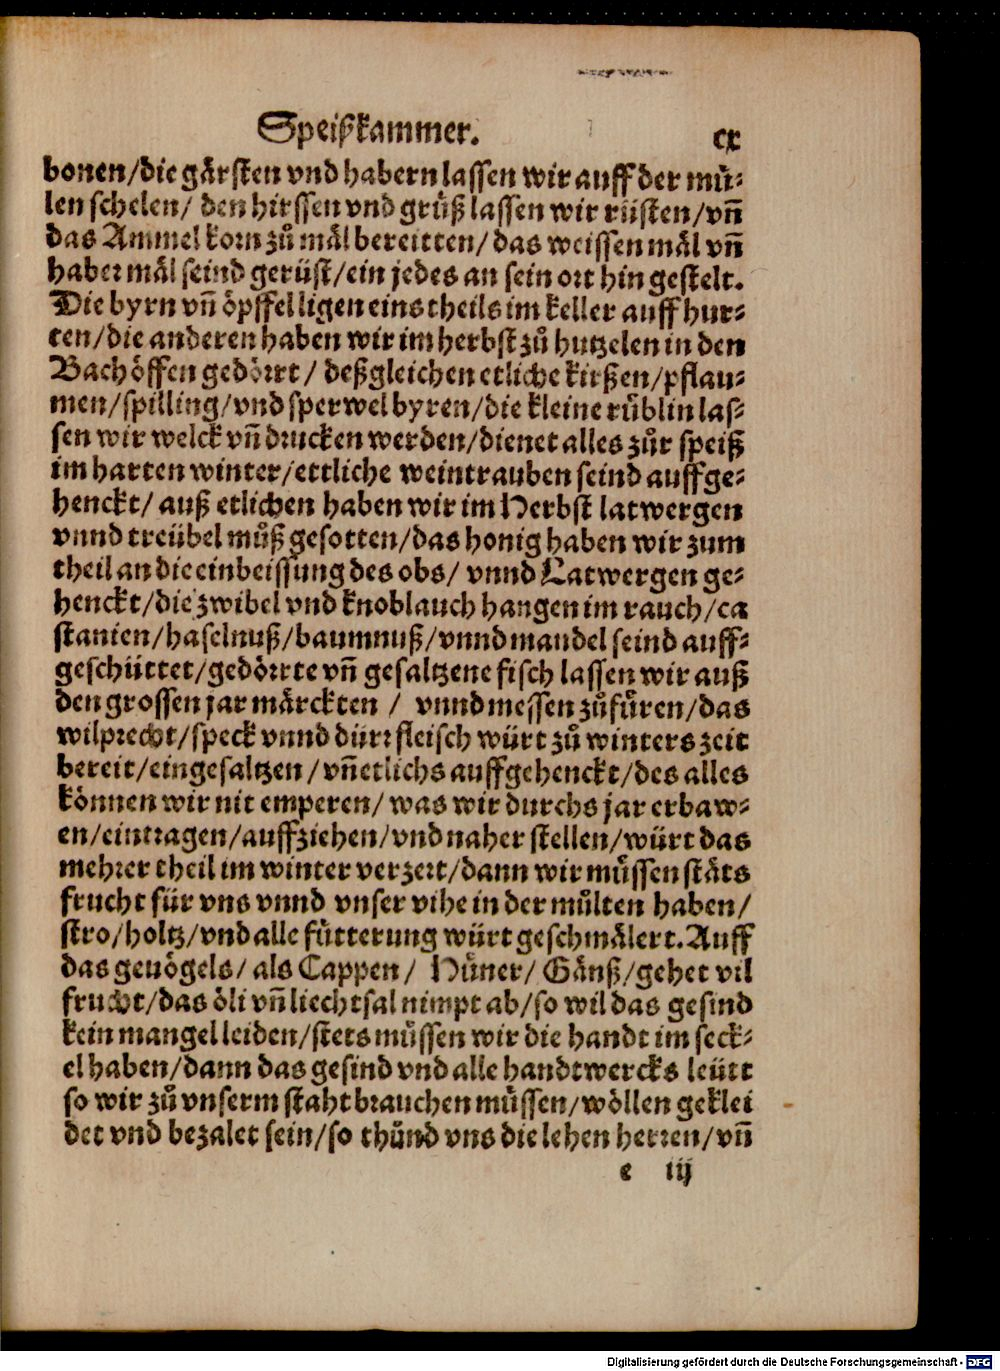 Speißkammer. cx
bonen/die gärsten vnd habern lassen wir auff der mü⸗
len schelen/ den hirssen vnd grüß lassen wir rüsten/vñ
das Ammel korn zů mäl bereitten/das weissen mäl vñ
haber mäl seind gerüst/ein jedes an sein ort hin gestelt.
Die byrn vñ öpffel ligen eins theils im keller auff hur⸗
ten/die anderen haben wir im herbst zů hutzelen in den
Bachöffen gedörrt/ deßgleichen etliche kirßen/pflau⸗
men/spilling/vnd sperwel byren/die kleine rüblin las⸗
sen wir welck vñ drucken werden/dienet alles zůr speiß
im harten winter/ettliche weintrauben seind auffge⸗
henckt/ auß etlichen haben wir im Herbst latwergen
vnnd treübel můß gesotten/das honig haben wir zum
theil an die einbeissung des obs/ vnnd Latwergen ge⸗
henckt/die zwibel vnd knoblauch hangen im rauch/ca
stanien/haselnuß/baumnuß/vnnd mandel seind auff⸗
geschüttet/gedörrte vñ gesaltzene fisch lassen wir auß
den grossen jar märckten / vnnd messen zůfüren/das
wilprecht/speck vnnd dürr fleisch würt zů winters zeit
bereit/eingesaltzen/vñ etlichs auffgehenckt/des alles
können wir nit emperen/was wir durchs jar erbaw⸗
en/eintragen/auffziehen/vnd naher stellen/würt das
mehrer theil im winter verzert/dann wir müssen stäts
frucht für vns vnnd vnser vihe in der mülten haben/
stro/holtz/vnd alle fütterung würt geschmälert. Auff
das geuögels/ als Cappen/ Hüner/ Gänß/gehet vil
frucht/das öli vñ liechtsal nimpt ab/so wil das gesind
kein mangel leiden/stets müssen wir die handt im seck⸗
el haben/dann das gesind vnd alle handtwercks leütt
so wir zů vnserm staht brauchen müssen/wöllen geklei
det vnd bezalet sein/so thůnd vns die lehen herren/vñ
e iij
Digitalisierung gefördert durch die Deutsche Forschungsgemeinschaft - DFG